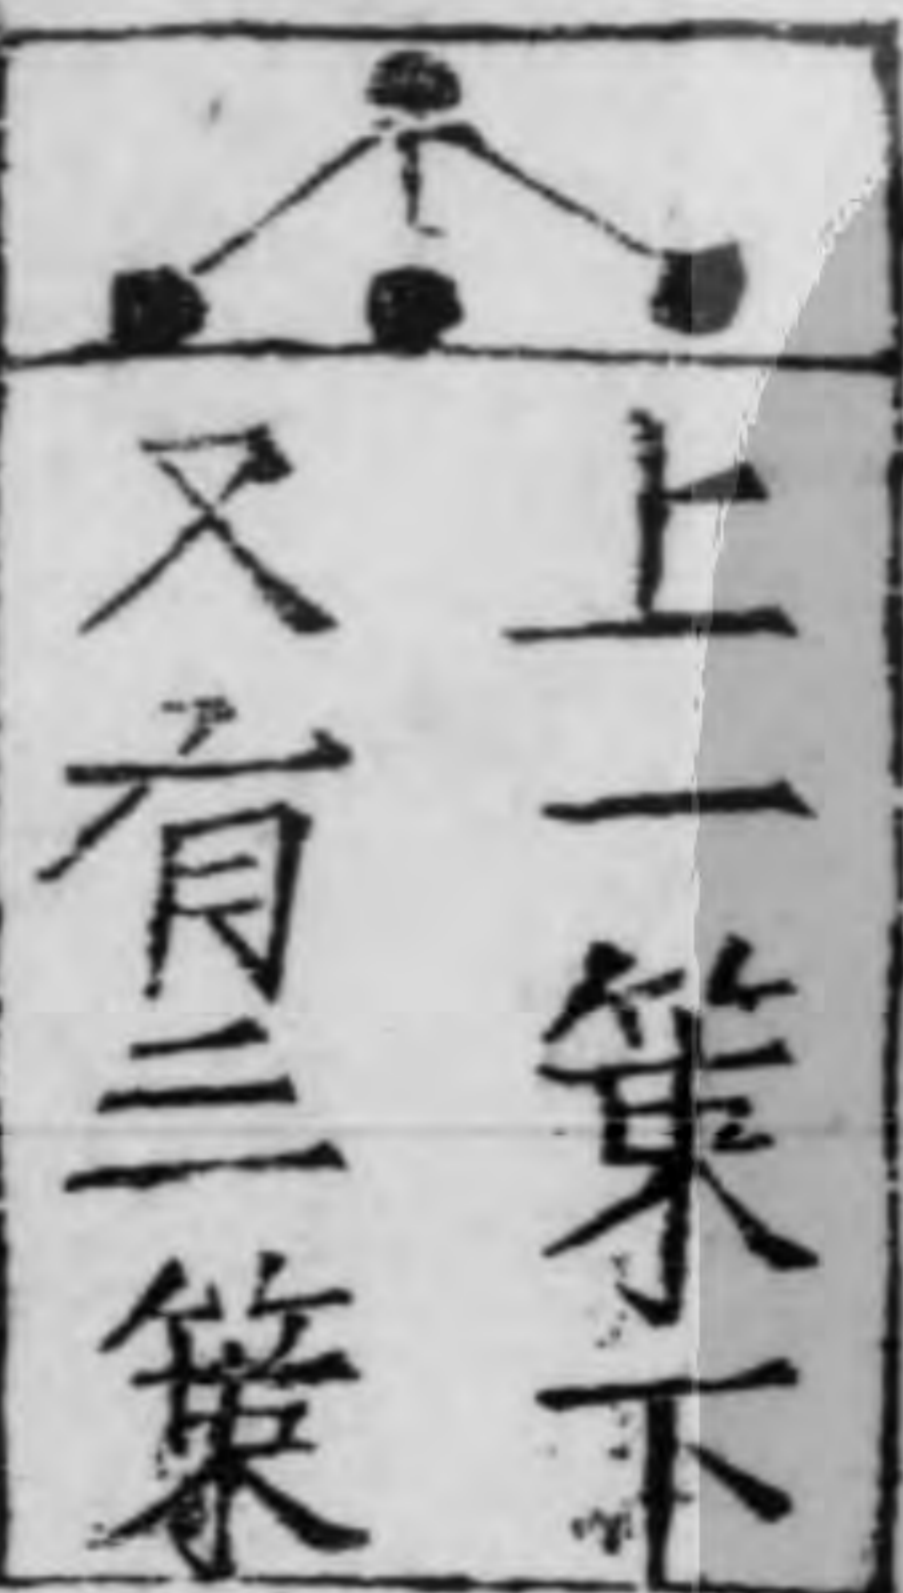 上一策下
又有三策